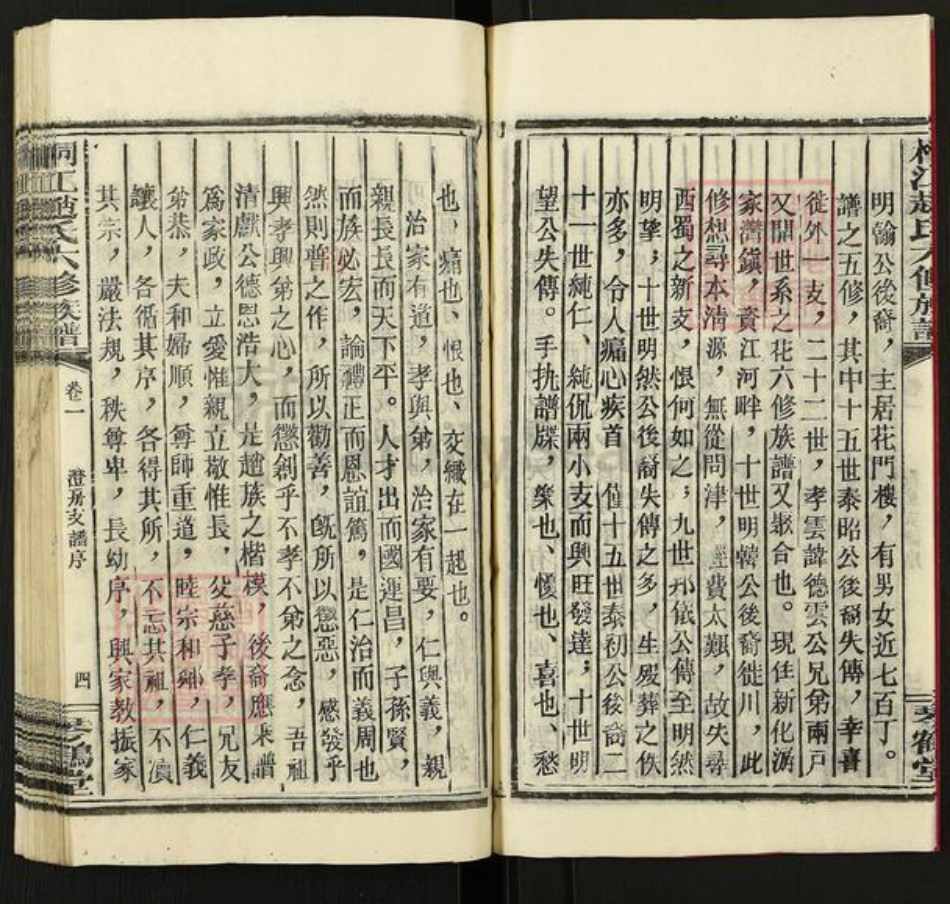 明翰公後裔，主居花門樓，有男女近七百丁。
譜之五修，其中十五世泰昭公後裔失傳，幸喜
徙外一支，二十二世，孝雲諱德雲公兄弟兩戸
又開世系之花六修族譜又聚合也。現住新化游
家灣鎮，資江河畔，十世明韓公後裔徙川，此
修想尋本清源，無從問津，經費太艱，故失尋
西蜀之新支，恨何如之；九世邦儀公傳至明然
明挚；十世明然公後裔失傳之多，生殁葬之佚
亦多，令人痛心疾首　僅十五世泰初公後裔二
十一世純仁、純侃兩小支而興旺發達；十世明
望公失傳。手执譜牒，樂也、憂也、喜也、愁
也、痛也、恨也、交織在一起也。
治家有道，孝與弟，治家有要，仁與義，親
親長長而天下平。人才出而國運昌，子孫賢，
而族必宏，論禮正而恩誼篤，是仁治而義周也
然則譜之作，所以勸善，旣所以懲惡，感發乎
興孝興弟之心，而懲創乎不孝不弟之念，吾祖
清獻公德恩浩大，是趙族之楷模，後裔應秉譜
爲家政，立愛惟親立敬惟長，父慈子孝，兄友
弟恭，夫和婦順，尊師重道，睦宗和鄰，仁義
讓人，各循其序，各得其所，不忘其祖，不瀆
其宗，嚴法規，秩尊卑，長幼序，興家教振家
桐江趙氏六修族譜
卷一
澄房支譜序
四
琴鶴堂